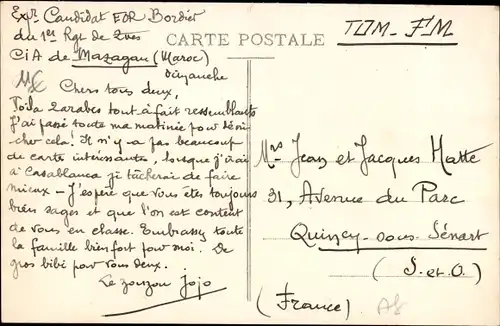 Expr Candidat EOR Bordier
du 1er Rgt de Zves
CIA de Mazagan (Maroc)
CARTE POSTALE
TOM - FM
Dimanche
Chers tous deux,
Voilà 2 arabes tout à fait ressemblants
J'ai passé toute ma matinée pour déni-
cher cela! Il n'y a pas beaucoup
de carte intéressante, lorsque j'irai
à Casablanca je tâcherai de faire
mieux - J'espère que vous êtes toujours
bien sages et que l'on est content
de vous en classe. Embrassez toute
la famille bien fort pour moi. De
gros bibi pour vous deux.
Le zouzou Jojo
Mrs Jean et Jacques Hatte
31, Avenue du Parc
Quincy-sous-Sénart
(S. et O.)
(France)